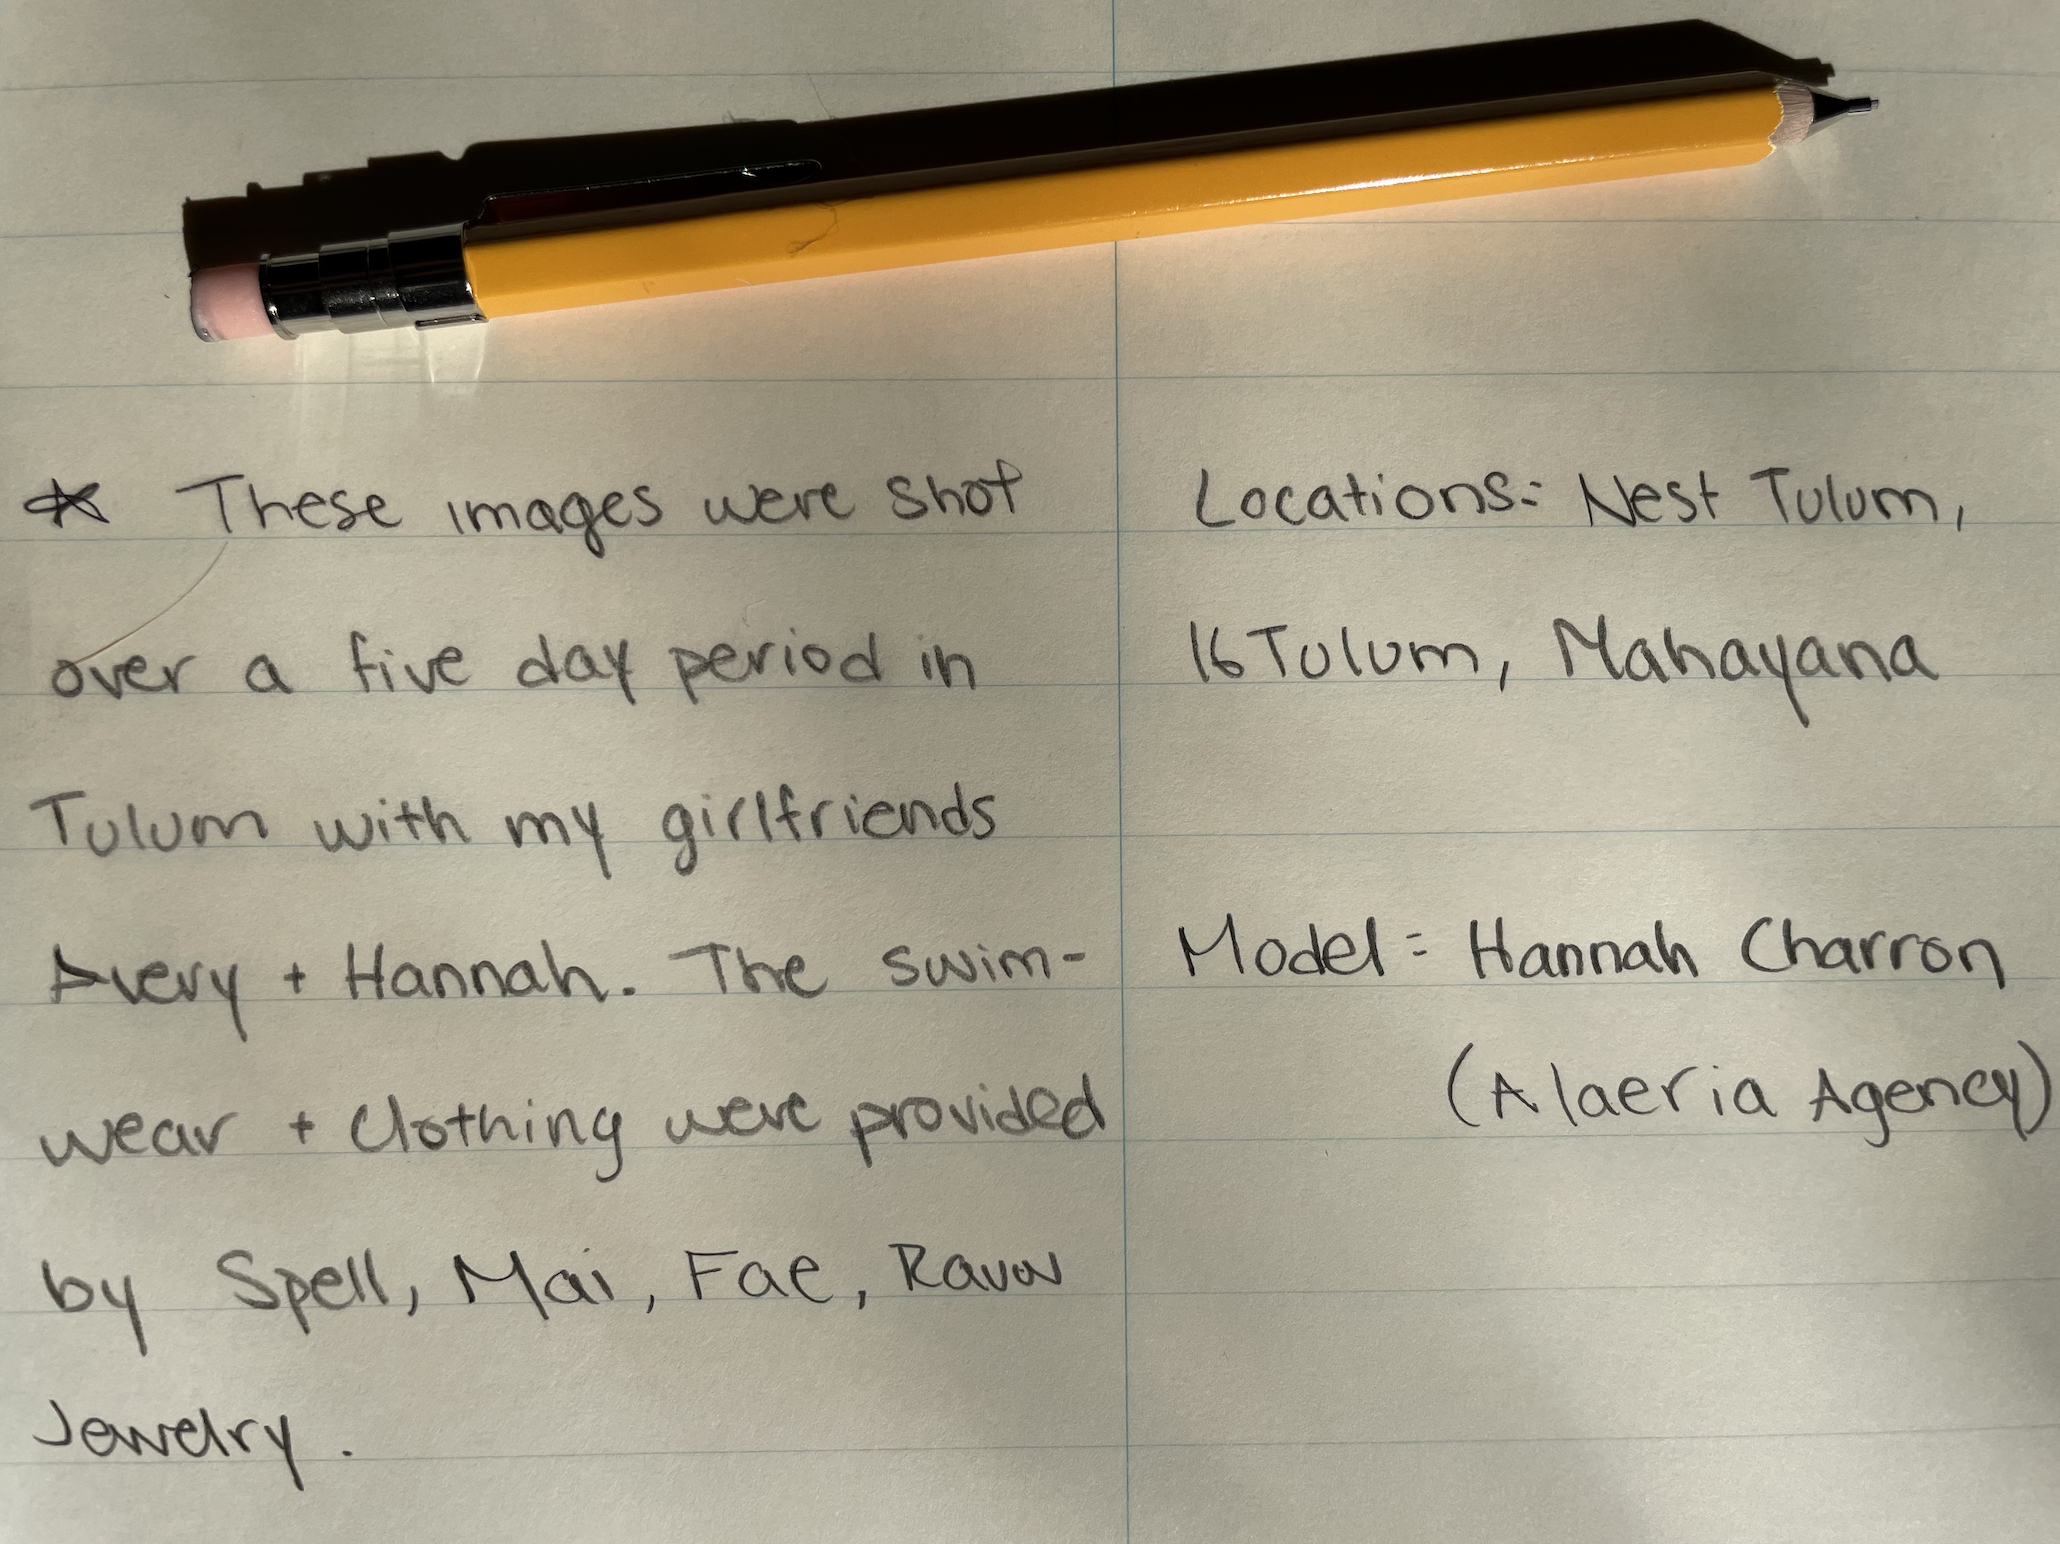 ☆ These images were shot
over a five day period in
Tulum with my girlfriends
Avery + Hannah. The swim-
wear + Clothing were provided
by Spell, Mai, Fae, Rauw
Jewelry.
Locations: Nest Tulum,
16 Tulum, Mahayana
Model: Hannah Charron
(Alaeria Agency)